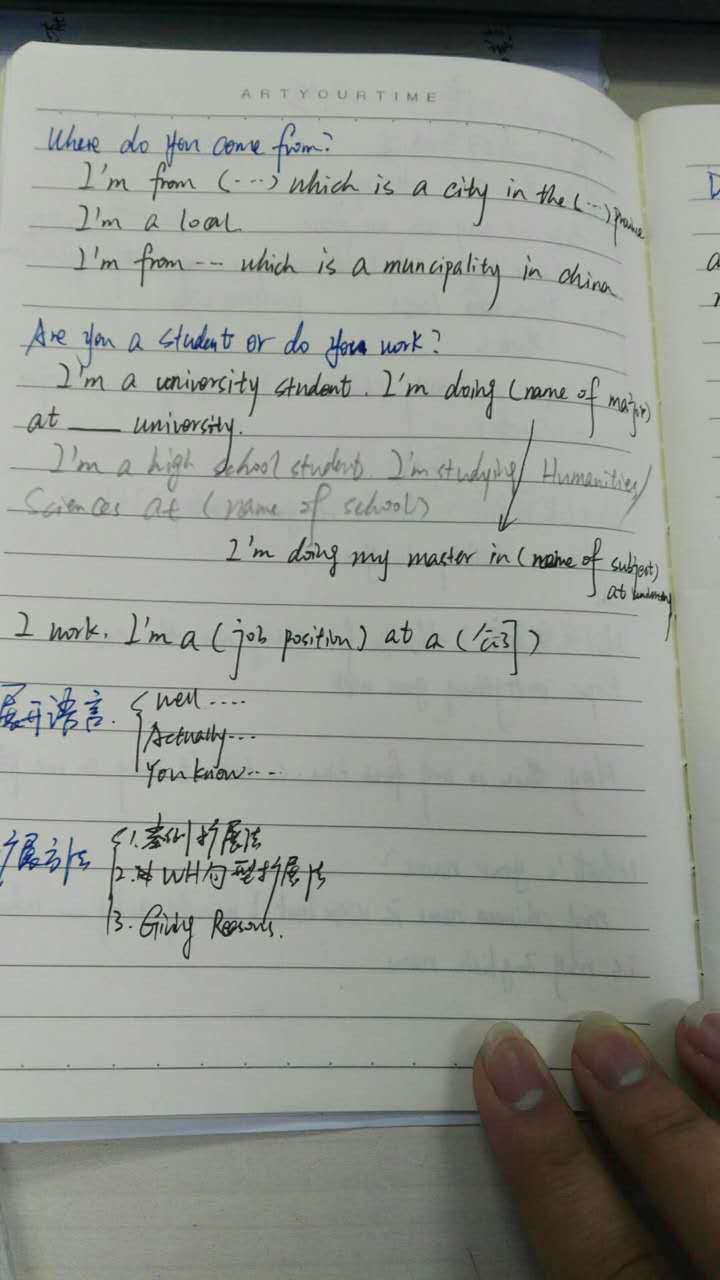 ARTYOURTIME
Where do you come from?
I'm from (...) which is a city in the (...)
I'm a local.
I'm from -- which is a muncipality in china
Are you a student or do you work?
I'm a university student. I'm doing (name of major)
at ___ university.
I'm a high school student. I'm studying Humanities/
Sciences at (name of school)
I'm doing my master in (name of subject)
at
I work. I'm a (job position) at a (公司)
展开语言. well ....
Actually...
You know...
扩展方法 1. 扩展法
2. WH句型扩展法
3. Giving Reasons.